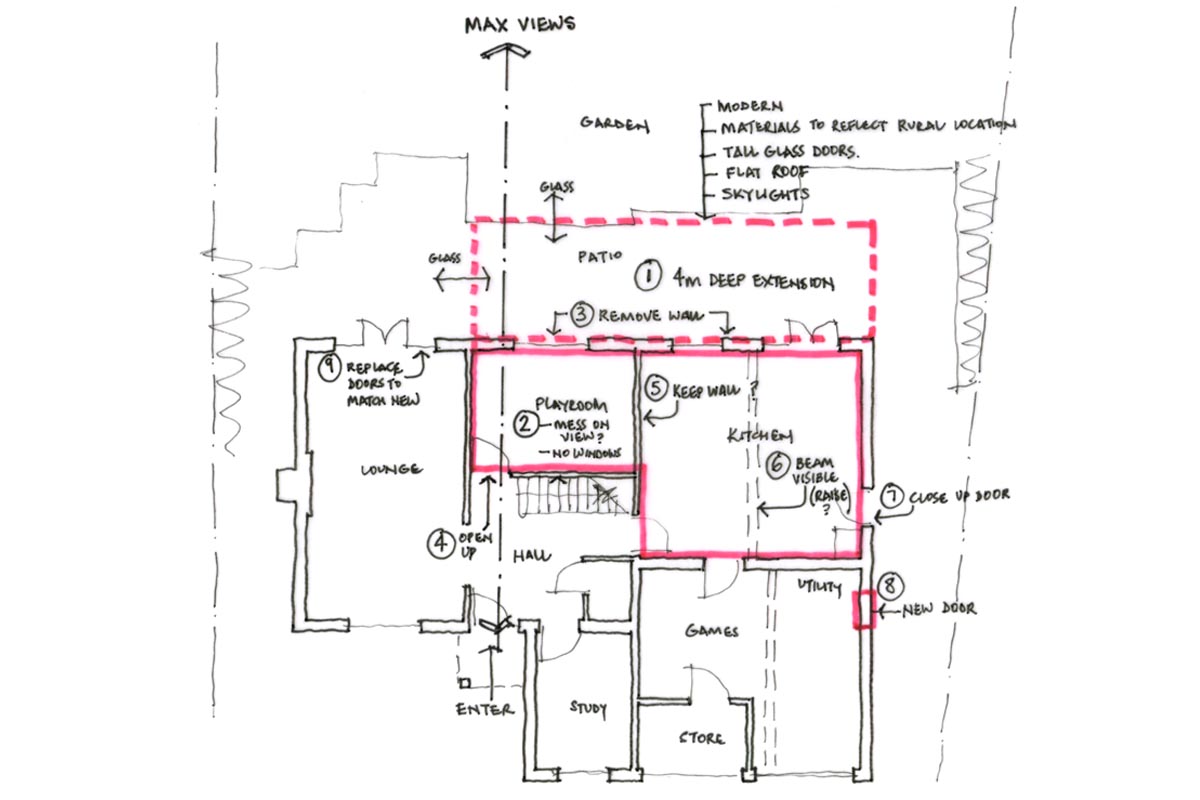 MAX VIEWS
GARDEN
MODERN
MATERIALS TO REFLECT RURAL LOCATION
TALL GLASS DOORS.
FLAT ROOF
SKYLIGHTS
GLASS
GLASS
PATIO
1 4m DEEP EXTENSION
3 REMOVE WALL
9 REPLACE
DOORS TO
MATCH NEW
5 KEEP WALL ?
PLAYROOM
2 - MESS ON
VIEW?
- NO WINDOWS
KITCHEN
LOUNGE
6 BEAM
VISIBLE
(RAISE)
?
7 CLOSE UP DOOR
4 OPEN
UP
HALL
UTILITY
8
NEW DOOR
GAMES
ENTER
STUDY
STORE